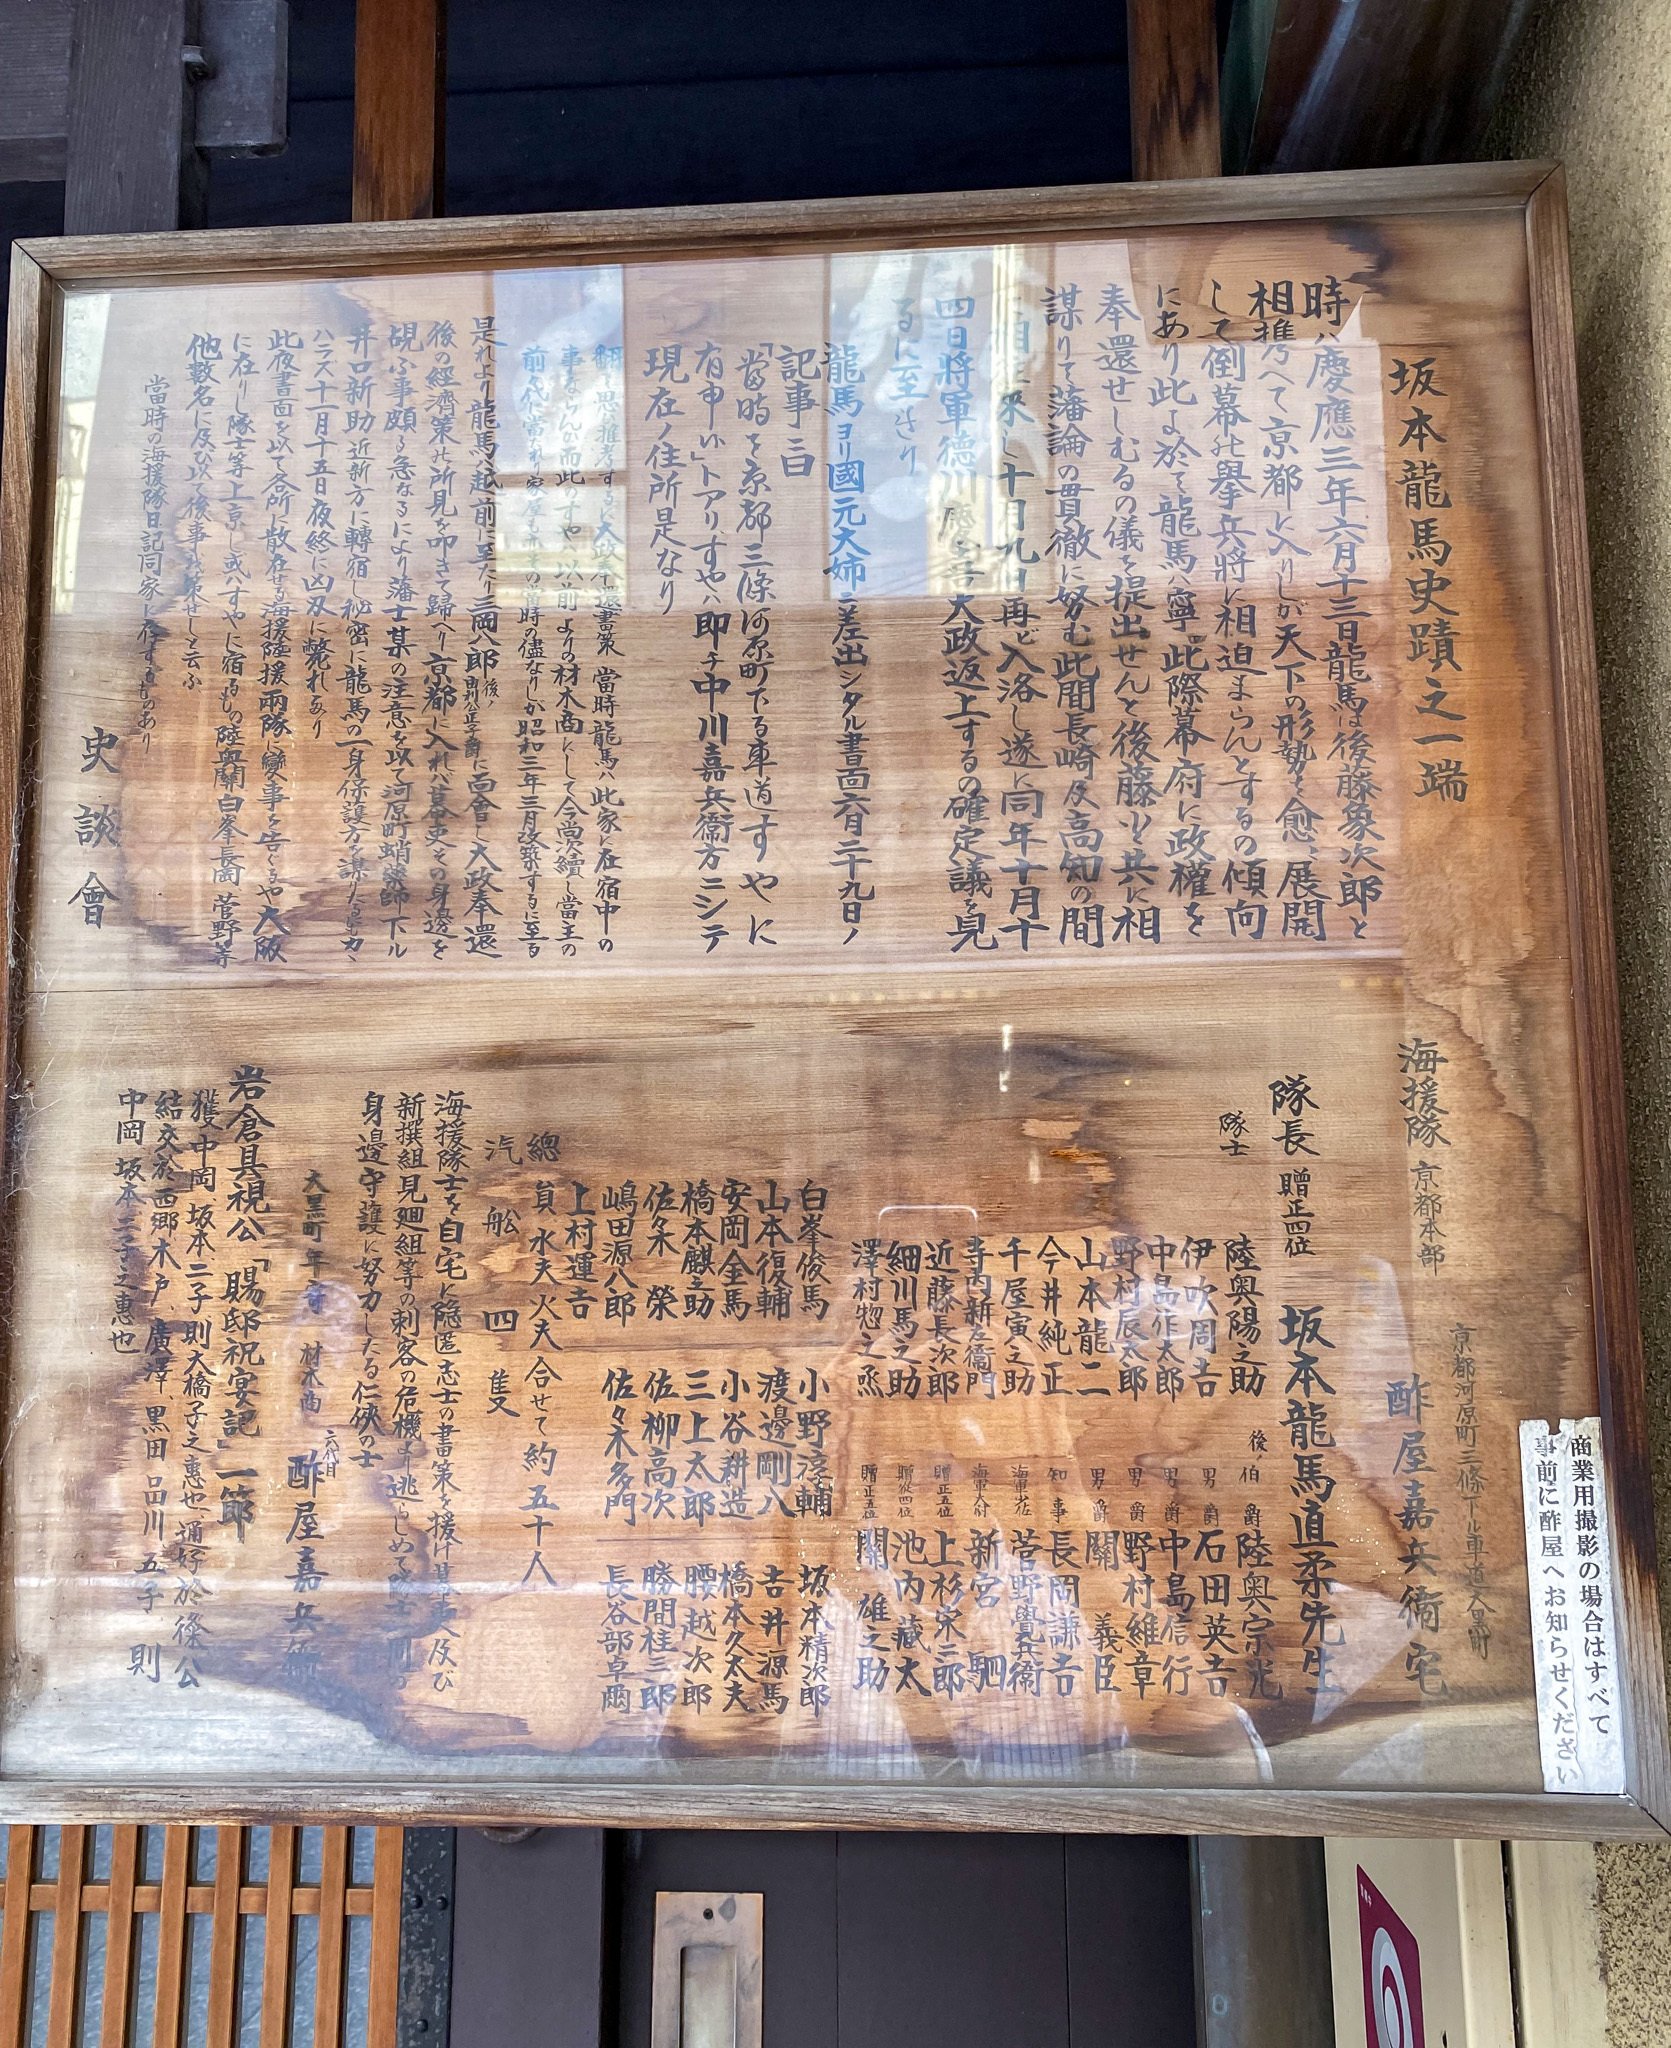 坂本龍馬史蹟之一端
時ハ慶應三年六月十三日龍馬は後藤象次郎と
相携へて京都に入りしが天下の形勢は愈々展開
して倒幕の擧兵將に相迫まらんとするの傾向
にあり此よ於て龍馬ハ寧此際幕府に政權を
奉還せしむるの儀を提出せんと後藤と共に相
謀りて藩論の貫徹に努む此間長崎及高知の間
に相往來し十月九日再ど入洛し遂に同年十月十
四日將軍徳川慶喜大政返上するの確定議を見
るに至れり
龍馬ヨリ國元大姉ニ差出シタル書面六月二十九日ノ
記事ニ曰
「當時を京都三條河原町下る車道すやに
有申候」トアリすやハ即チ中川嘉兵衛方ニシテ
現在ノ住所是なり
翻て思推考するに大政奉還書策 當時龍馬ハ此家に在宿中の
事ならんか而此のすやハ以前よりの材木商にして今尚續し當主の
前代に當れり家屋も亦その當時の儘なりしが昭和三年三月改築するに至る
是れより龍馬ハ越前に至たり三岡八郎後ノ由利公正子爵に面會し大政奉還
後の經濟策の所見を叩きて歸へり京都に入れバ幕吏その身邊を
覘ふ事頗る急なるにより藩士某の注意を以て河原町蛸藥師下ル
井口新助近新方に轉宿し秘密に龍馬の一身保護方を謀りたるも力及
ハラズ十一月十五日夜終に凶刃に斃れたり
此夜書面を以て各所に散在せる海援陸援兩隊に變事を告ぐるや大阪
に在りし隊士等上京し或ハすやに宿るもの陸奥關白峯長岡菅野等
他數名に及び以て後事を策せしと云ふ
當時の海援隊日記同家に存するものあり
史談會
海援隊 京都本部
京都河原町三條下ル車道大黒町
酢屋嘉兵衛宅
隊長 贈正四位 坂本龍馬直柔先生
隊士
陸奥陽之助 後ノ伯爵 陸奥宗光
伊吹周吉 男爵 石田英吉
中島作太郎 男爵 中島信行
野村辰太郎 男爵 野村維章
山本龍二 男爵 關義臣
今井純正 知事 長岡謙吉
千屋寅之助 海軍少佐 菅野覺兵衛
寺内新左衛門 海軍大尉 新宮馴
近藤長次郎 贈正五位 上杉宋二郎
細川馬之助 贈從四位 池内藏太
澤村惣之丞 贈正五位 關雄之助
白峯俊馬 小野淳輔 坂本精次郎
山本復輔 渡邊剛八 吉井源馬
安岡金馬 小谷耕造 橋本久太夫
橋本麒之助 三上太郎 腰越次郎
佐々木榮 佐柳高次 勝間桂三郎
嶋田源八郎 佐々木多門 長谷部卓爾
上村運吉
總員水夫火夫合せて約五十人
汽舩 四隻
海援隊士を自宅に隠匿志士の書策を援け幕吏及び
新撰組見廻組等の刺客の危機より逃らしめて隊士一同の
身邊守護に努力したる仁俠の士
大黒町年寄 材木商 六代目 酢屋嘉兵衛
岩倉具視公「賜邸祝宴記」一節
獲中岡、坂本二子則大橋子之惠也、通好於條公
結交於西郷木戸、廣澤、黒田品川、五子、則
中岡坂本二子之惠也
商業用撮影の場合はすべて
事前に酢屋へお知らせください